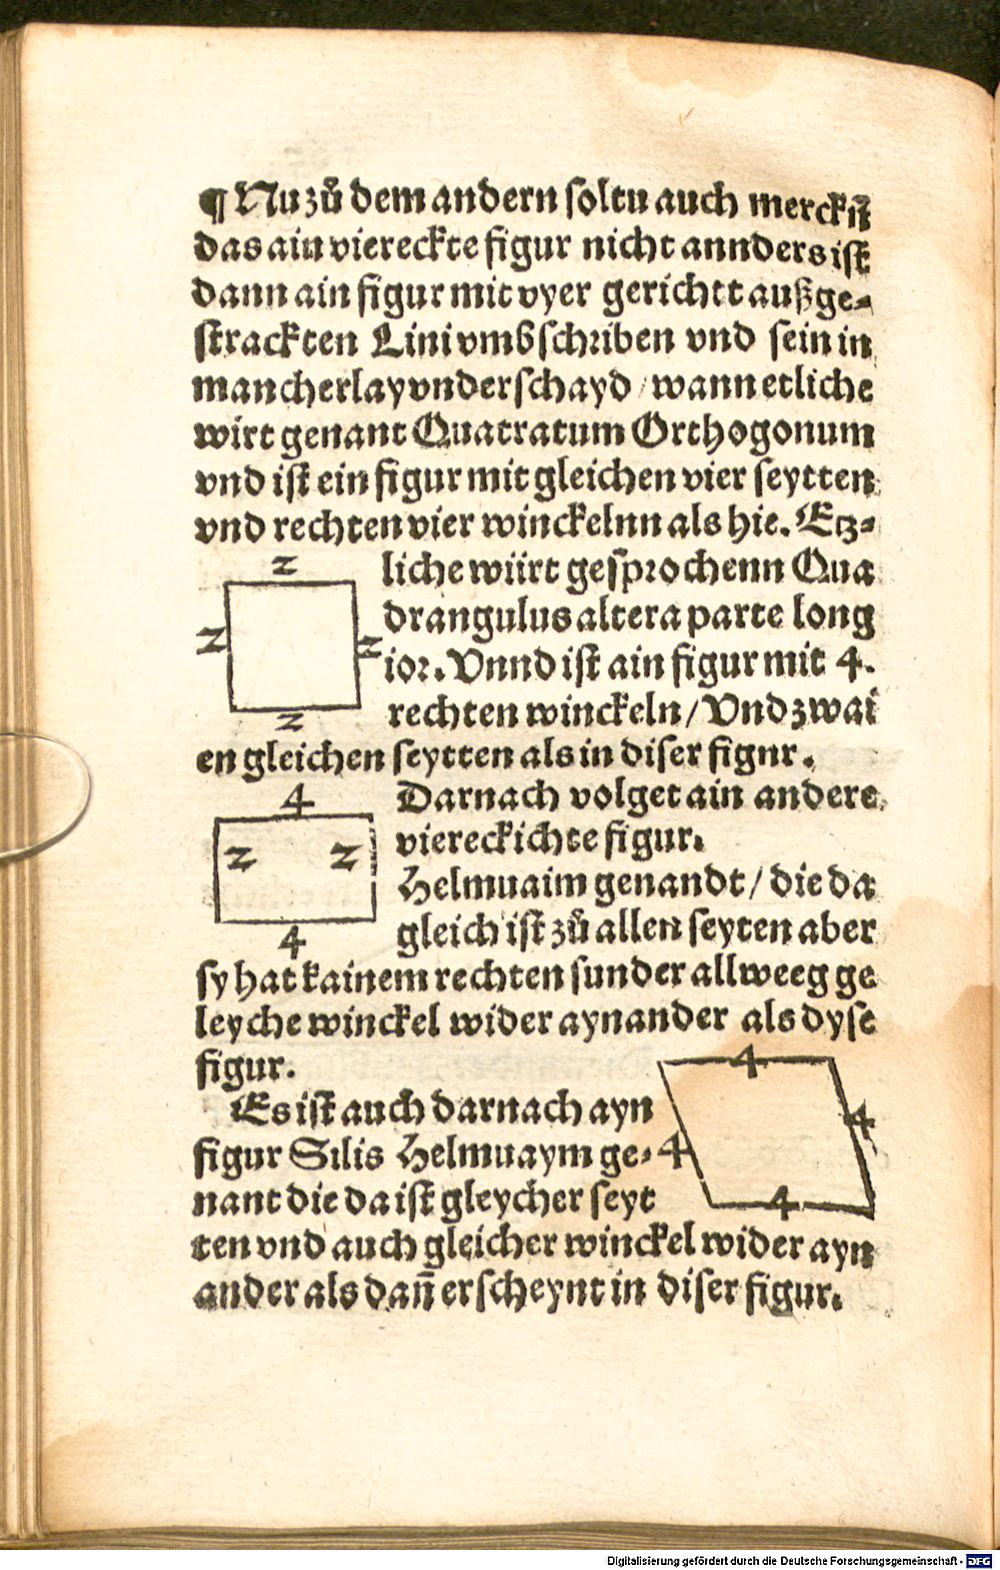 ¶ Nu zů dem andern soltu auch merckn̄
das ain viereckte figur nicht annders ist
dann ain figur mit vyer gerichtt außge⸗
strackten Lini vmbschriben vnd sein in
mancherlay vnderschayd / wann etliche
wirt genant Quatratum Orthogonum
vnd ist ein figur mit gleichen vier seytten
vnd rechten vier winckelnn als hie. Etz⸗
2
liche wiirt gesprochenn Qua
drangulus altera parte long
2 2
ior. Vnnd ist ain figur mit 4.
rechten winckeln / Vnd zwai
2
en gleichen seytten als in diser fignr.
4
Darnach volget ain andere
viereckichte figur.
2 2
Helmuaim genandt / die da
gleich ist zů allen seyten aber
4
sy hat kainem rechten sunder allweeg ge
leyche winckel wider aynander als dyse
figur.
4
Es ist auch darnach ayn
4
figur Silis Helmuaym ge⸗
4
nant die da ist gleycher seyt
4
ten vnd auch gleicher winckel wider ayn
ander als dan̄ erscheynt in diser figur.
Digitalisierung gefördert durch die Deutsche Forschungsgemeinschaft - DFG